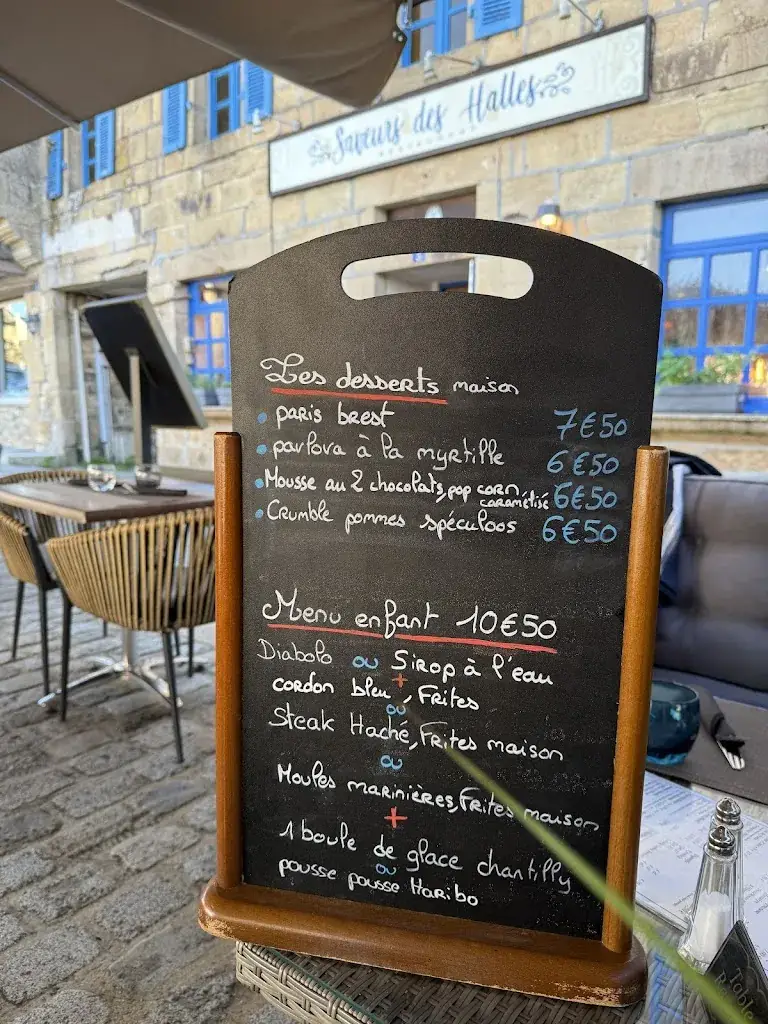 Saveurs des Halles
Les desserts maison
• paris brest 7€50
• pavlova à la myrtille 6€50
• Mousse au 2 chocolats, pop corn caramélisé 6€50
• Crumble pommes spéculoos 6€50
Menu enfant 10€50
Diabolo ou Sirop à l'eau
+
cordon bleu, Frites
ou
Steak Haché, Frites maison
ou
Moules marinières, Frites maison
+
1 boule de glace chantilly
ou
pousse pousse Haribo